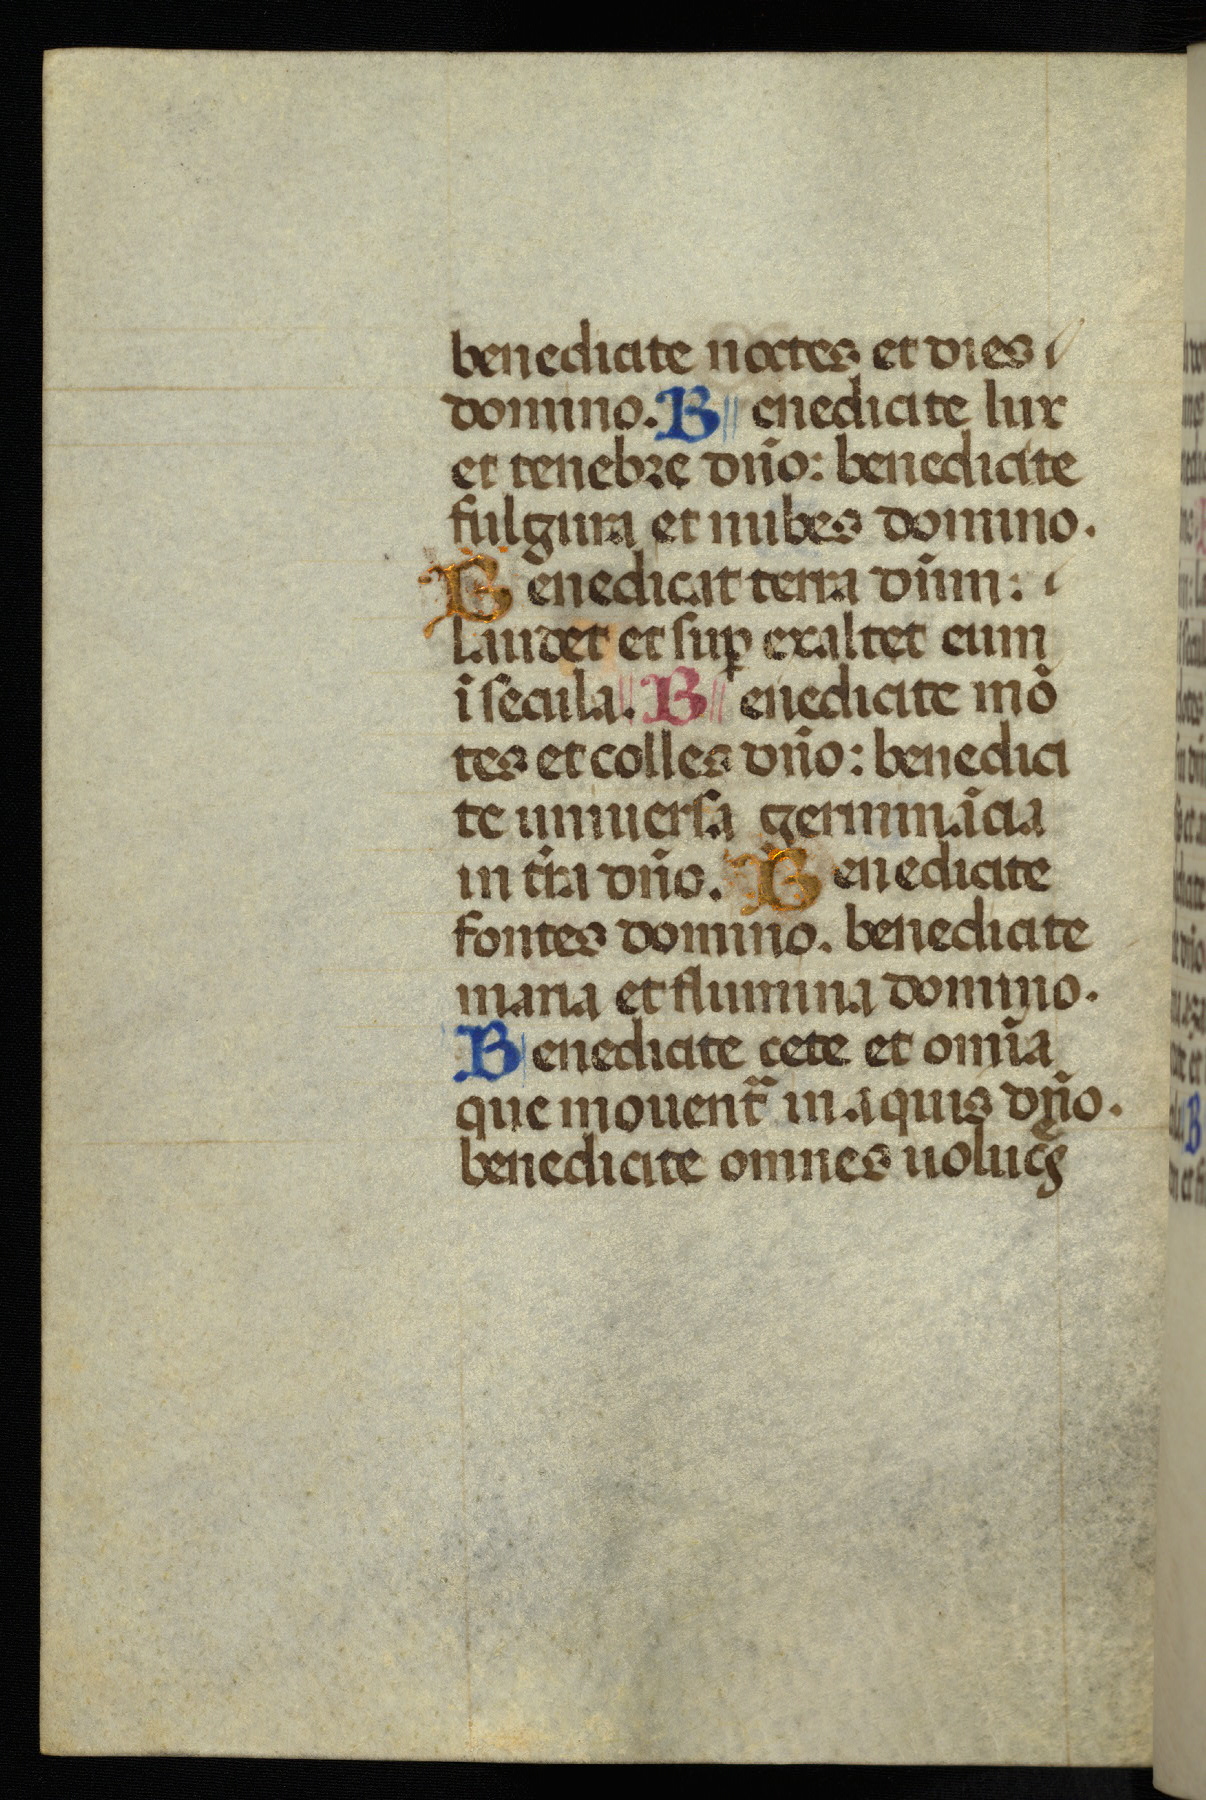 benedicite noctes et dies
domino. Benedicite lux
et tenebre dño: benedicite
fulgura et nubes domino.
Benedicat terra dñm:
laudet et suꝑ exaltet eum
ī secula. Benedicite mō
tes et colles dño: benedici
te uniuersa germinãcia
in tr̃a dño. Benedicite
fontes domino. benedicite
maria et flumina domino.
Benedicite cete et omĩa
que mouent᷑ in aquis dño.
benedicite omnes